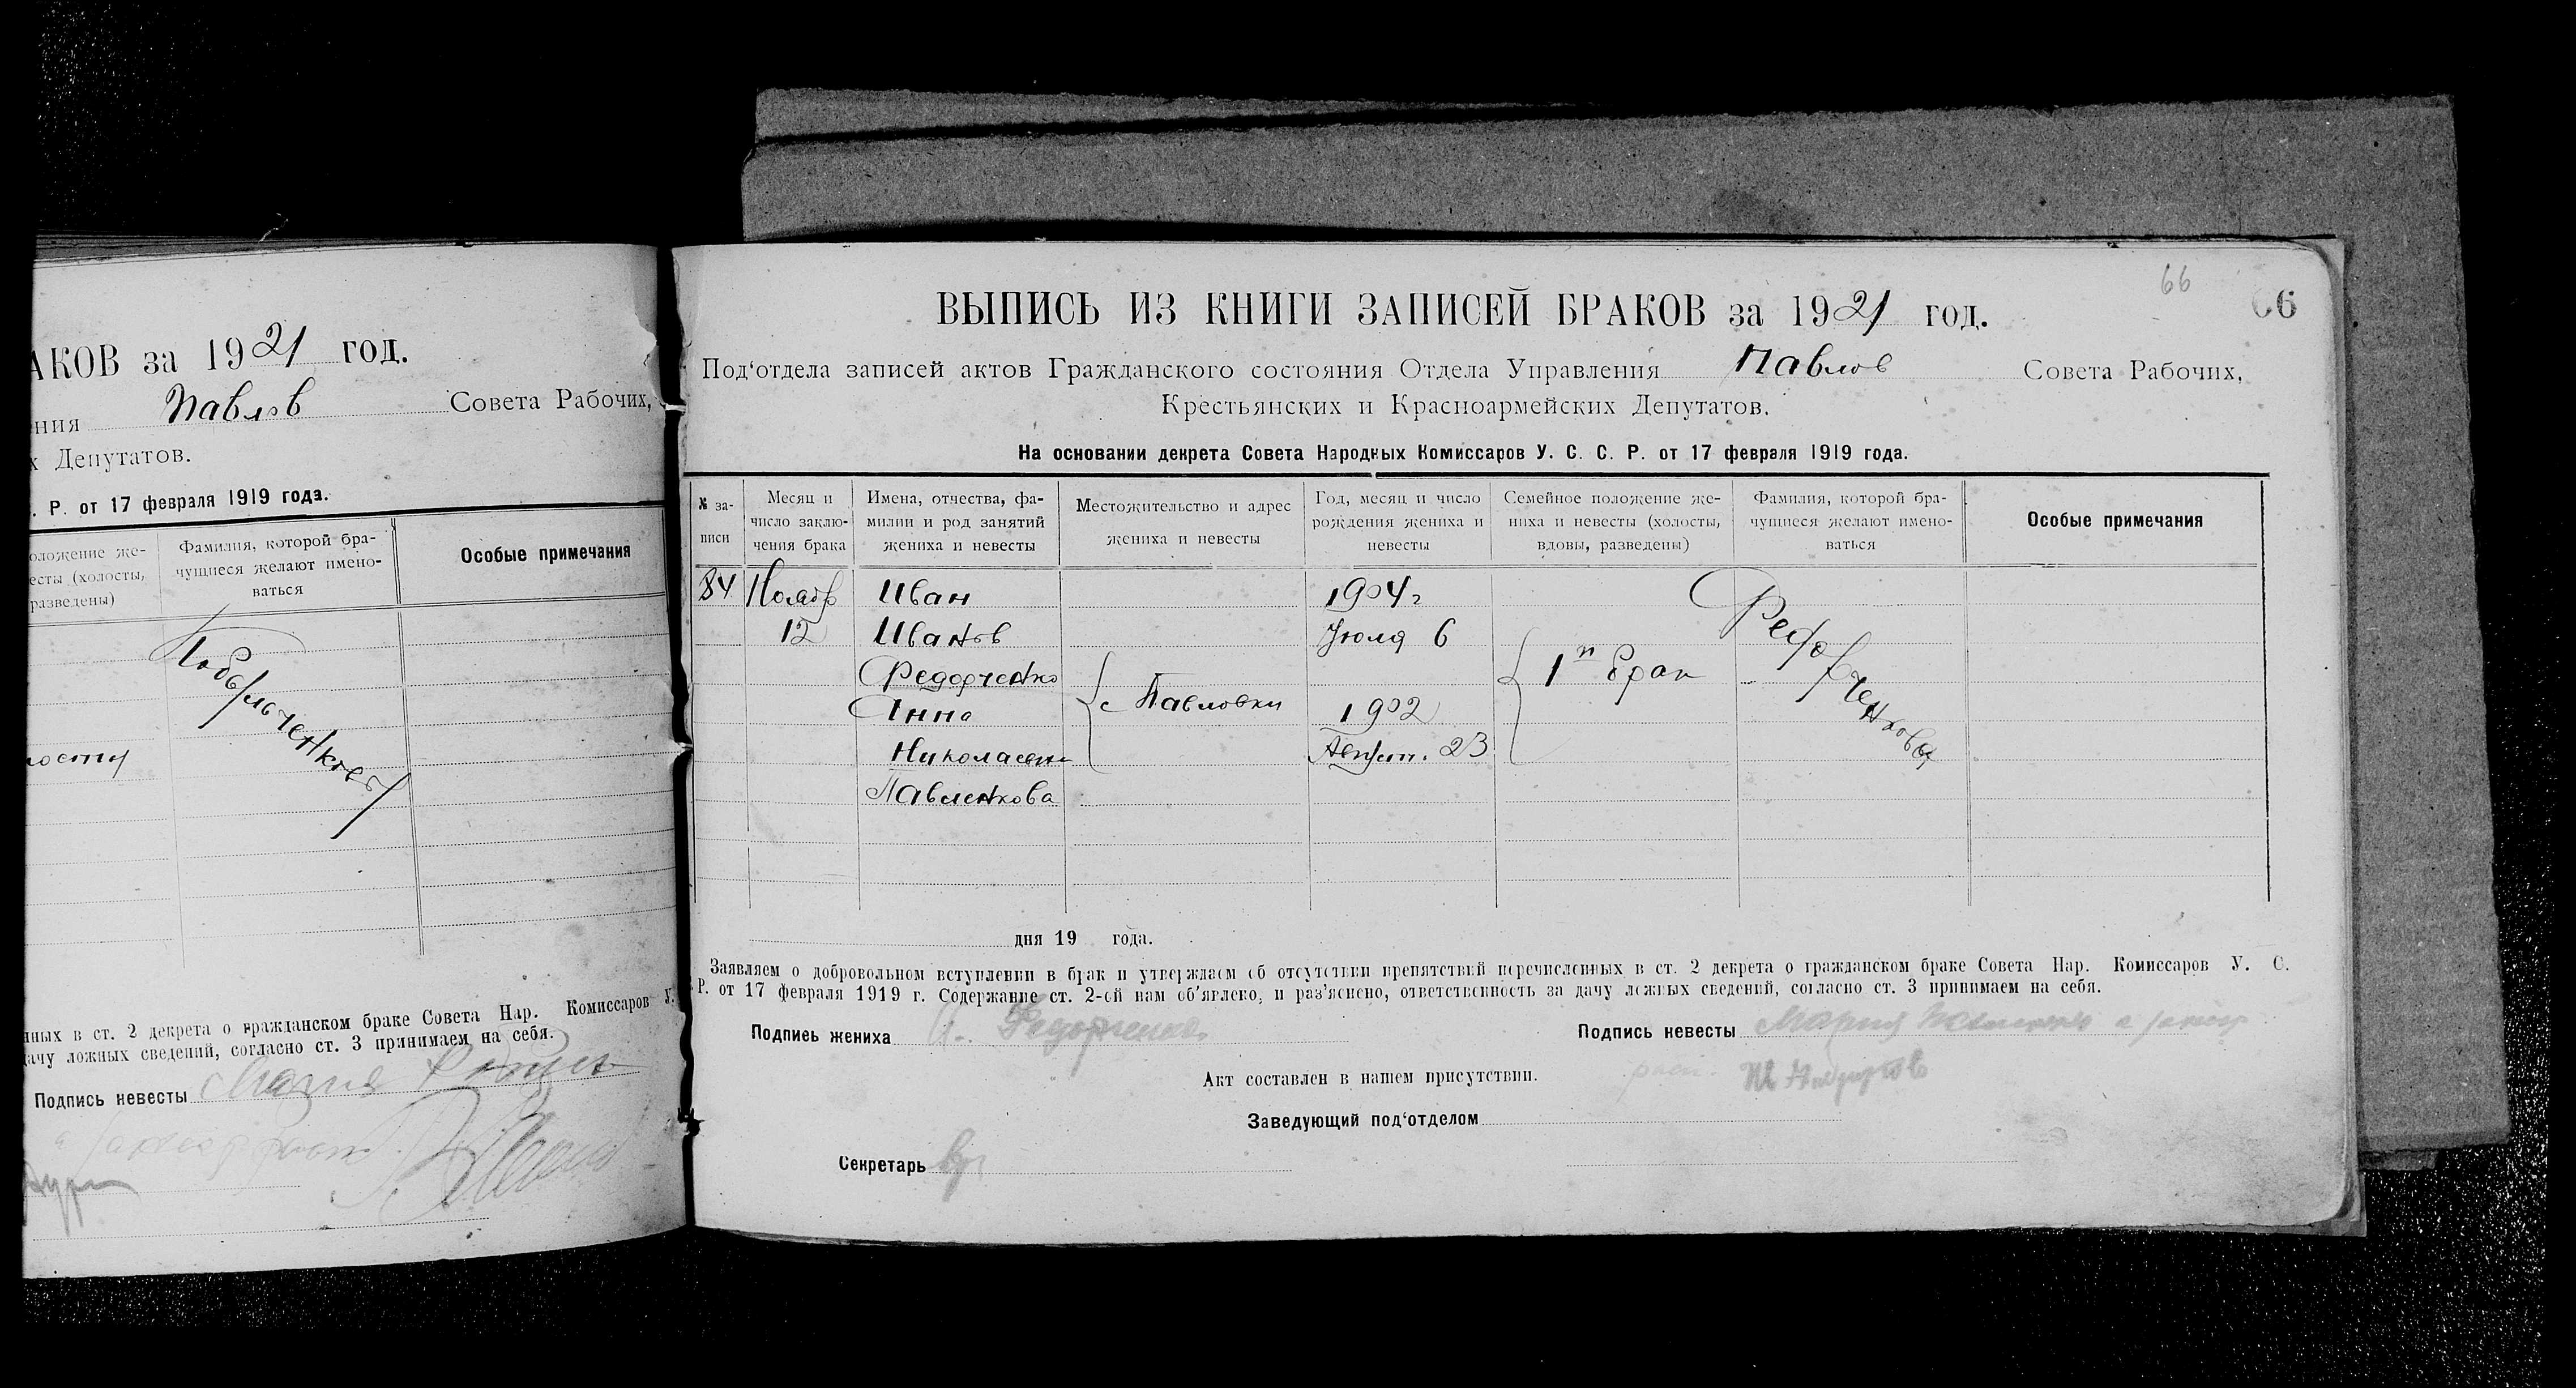 АКОВ за 1921 год.
ния Павлов Совета Рабочих,
х Депутатов.
. Р. от 17 февраля 1919 года.
оложение же-
есты (холосты,
разведены)
Фамилия, которой бра-
чущиеся желают имено-
ваться
Особые примечания
нных в ст. 2 декрета о гражданском браке Совета Нар. Комиссаров У.
дачу ложных сведений, согласно ст. 3 принимаем на себя.
Подпись невесты Мария
66
66
ВЫПИСЬ ИЗ КНИГИ ЗАПИСЕЙ БРАКОВ за 1921 год.
Под‘отдела записей актов Гражданского состояния Отдела Управления Павлов Совета Рабочих,
Крестьянских и Красноармейских Депутатов.
На основании декрета Совета Народных Комиссаров У. С. С. Р. от 17 февраля 1919 года.
№ за-
писи
Месяц и
число заклю-
чения брака
Имена, отчества, фа-
милии и род занятий
жениха и невесты
Местожительство и адрес
жениха и невесты
Год, месяц и число
рождения жениха и
невесты
Семейное положение же-
ниха и невесты (холосты,
вдовы, разведены)
Фамилия, которой бра-
чущиеся желают имено-
ваться
Особые примечания
84 Ноябр Иван 1904 г
12 Иванов Июля 6
Федорченко
1й брак
с Павловки
Анна 1902
Николаевн Август. 23
Павленкова
Федорченковы
дня 19 года.
Заявляем о добровольном вступлении в брак и утверждаем об отсутствии препятствий перечисленных в ст. 2 декрета о гражданском браке Совета Нар. Комиссаров У. С.
Р. от 17 февраля 1919 г. Содержание ст. 2-ой нам об’явлено, и раз’яснено, ответственность за дачу ложных сведений, согласно ст. 3 принимаем на себя.
Подпиеь жениха И. Федорченко
Подпись невесты Мария
Акт составлен в нашем присутствии.
Заведующий под‘отделом
Секретарь